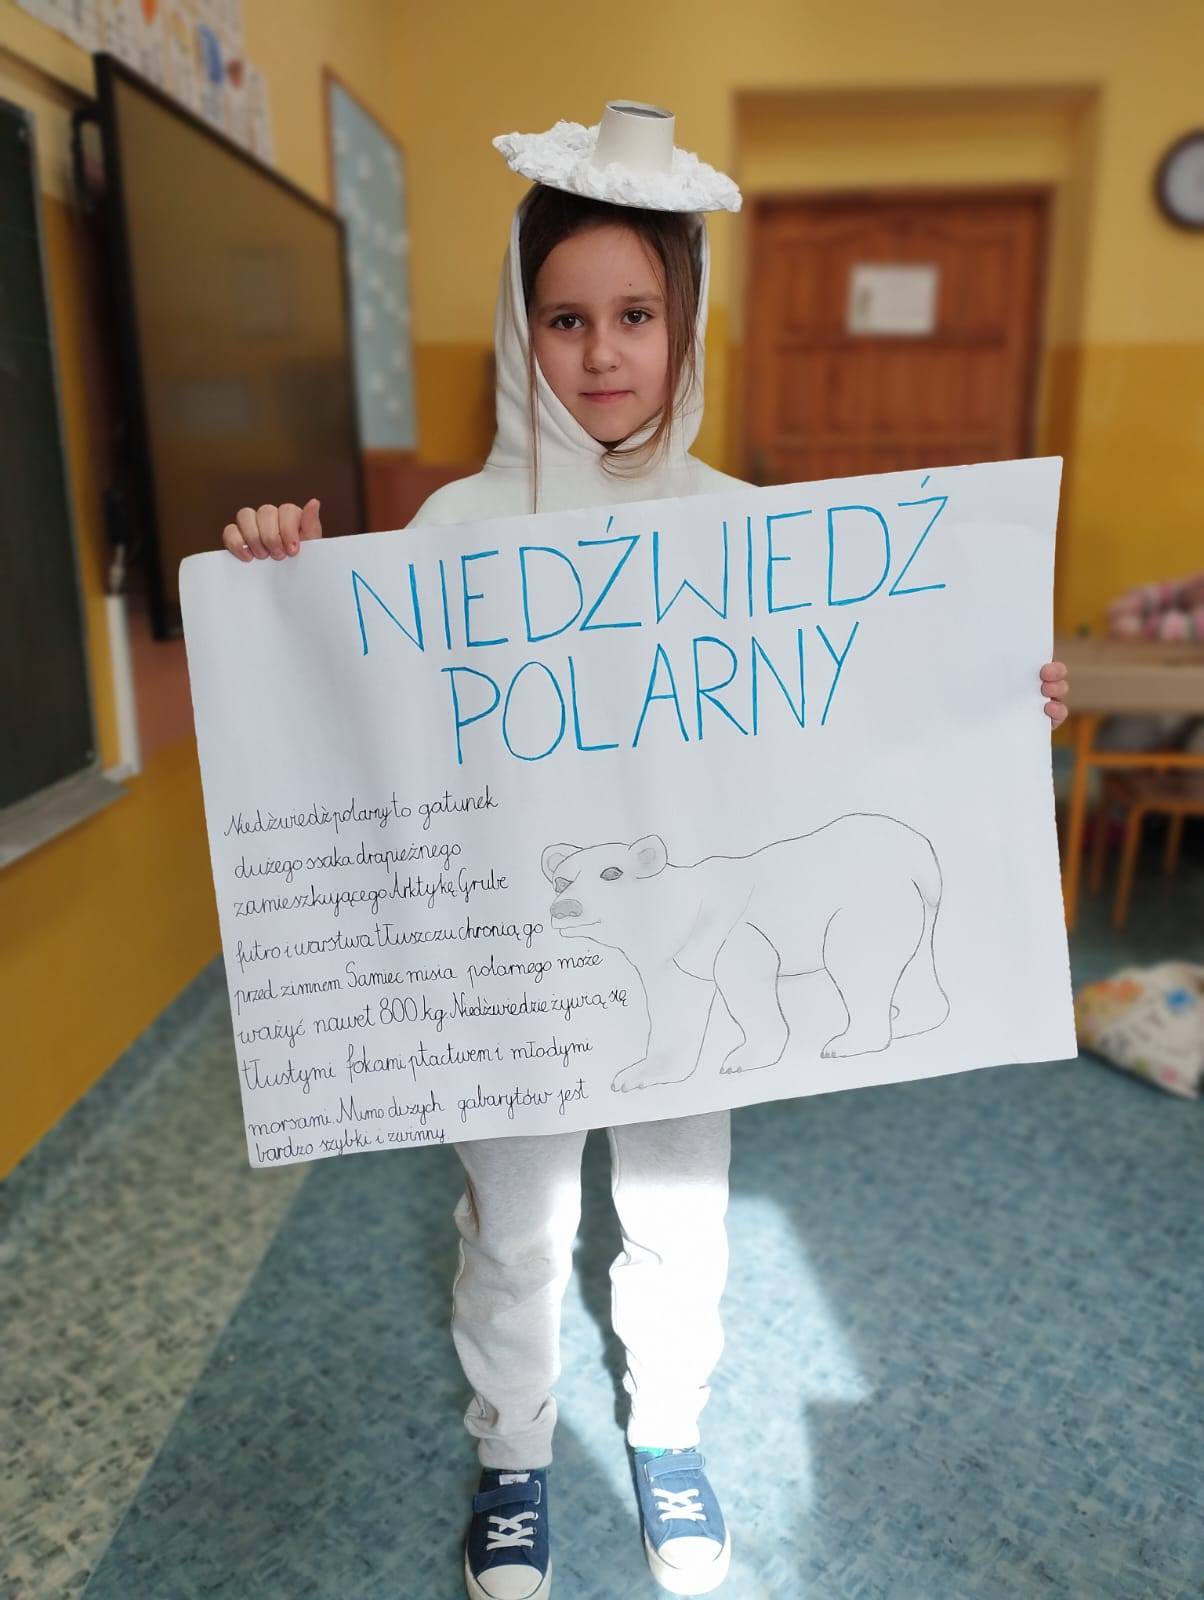 NIEDŹWIEDŹ
POLARNY
Niedźwiedź polarny to gatunek
dużego ssaka drapieżnego
zamieszkującego Arktykę Grube
futro i warstwa tłuszczu chronią go
przed zimnem Samiec misia polarnego może
ważyć nawet 800 kg. Niedźwiedzie żywią się
tłustymi fokami ptactwem i młodymi
morsami. Mimo dużych gabarytów jest
bardzo szybki i zwinny.